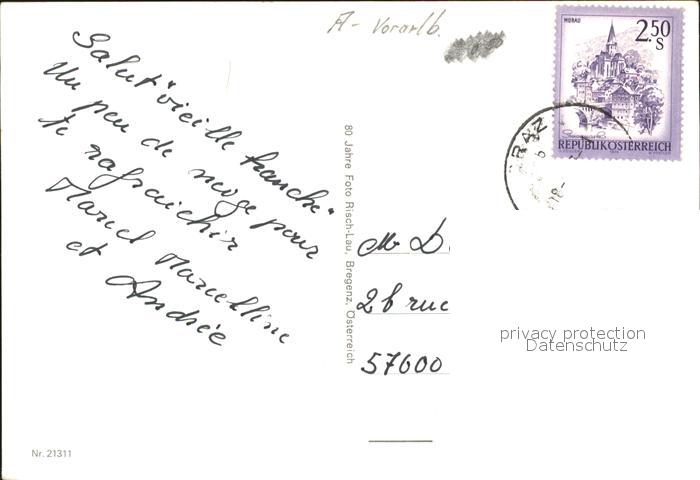 A- Vorarlb.
MURAU
2.50
S
REPUBLIK ÖSTERREICH
GRAZ
Salut "vieille branche"
Un peu de neige pour
te rafraichir
Marcel Marcelline
et Andrée
80 Jahre Foto Risch-Lau, Bregenz, Österreich
Mr D.
26 rue
57600
privacy protection
Datenschutz
Nr. 21311